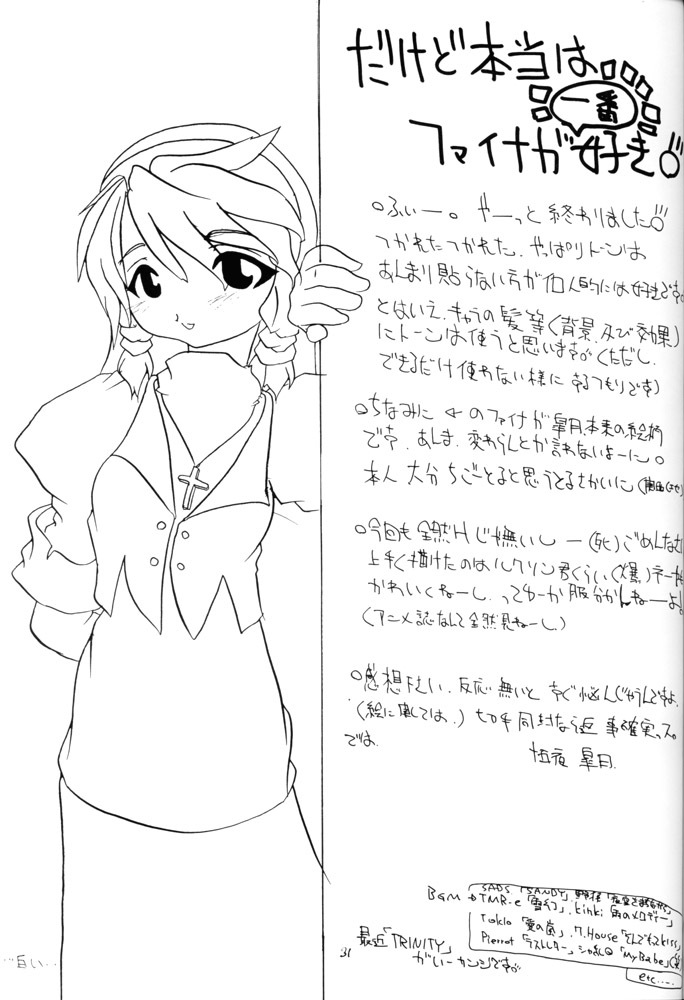 だけど本当は
一番
ファイナが好き
○ふぃー。やーっと終わりました
つかれたつかれた、やっぱりトーンは
あんまり貼らない方が個人的には好きです。
とはいえ、キャラの髪等(背景、及び効果)
にトーンは使うと思います。(ただし、
できるだけ使わない様にするつもりです)
○ちなみに ← のファイナが皐月本来の絵柄
です。あんま、変わらんとか言わないよーに。
本人 大分ちごーとると思うとるさかいに
○今回も全然Hじゃ無いしー(死)ごめんなさ
上手く描けたのはルクリン君くらい(爆)
かわいくねーし、ってゆーか服分かんねーよ!
(アニメ誌なんて全然見ねーし)
○感想下さい、反応無いとすぐ悩んじゃうんですよ
(絵に関しては、)切手同封なら返事確実っス。
では、
皐月
BGM→
SADS「SANDY」
TMR-e「雪幻」、Kinki「雨のメロディー」
Tokio「愛の嵐」、T.House「そんでもってKiss」
Pierrot「ラストレター」シャ乱Q「MyBabe」
etc.....
最近「TRINITY」
がいーカンジです。
31
…白い…